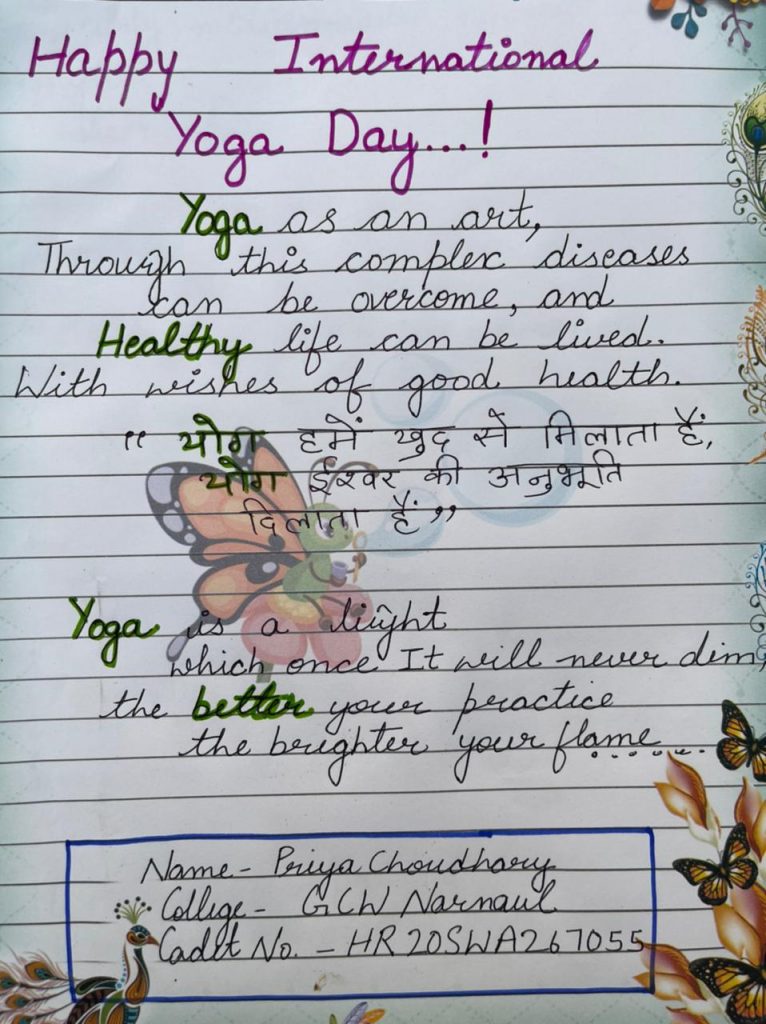 Happy International
Yoga Day...!
Yoga as an art,
Through this complex diseases
can be overcome, and
Healthy life can be lived.
With wishes of good health.
" योग हमें खुद से मिलाता हैं,
योग ईश्वर की अनुभूति
दिलाता हैं "
Yoga is a light
which once It will never dim,
the better your practice
the brighter your flame......
Name - Priya Choudhary
College - GCW Narnaul
Cadet No. - HR20SWA267055